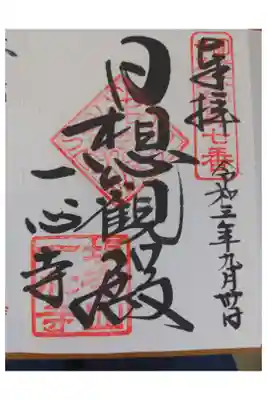 奉拝
七番
令和三年九月卅日
日想観殿
一心寺